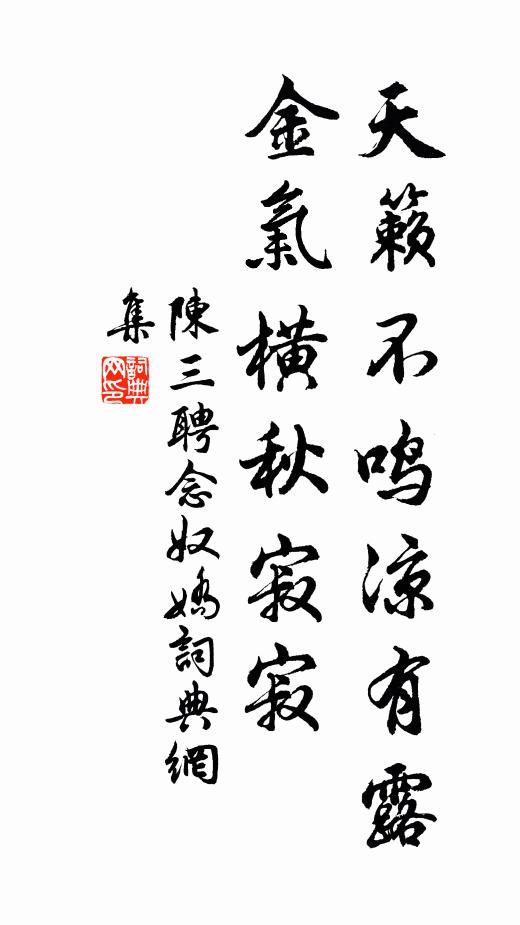 天籟不鳴凉有露
金氣橫秋寂寂
陳三聘念奴嬌詞典網
集
詞典网印